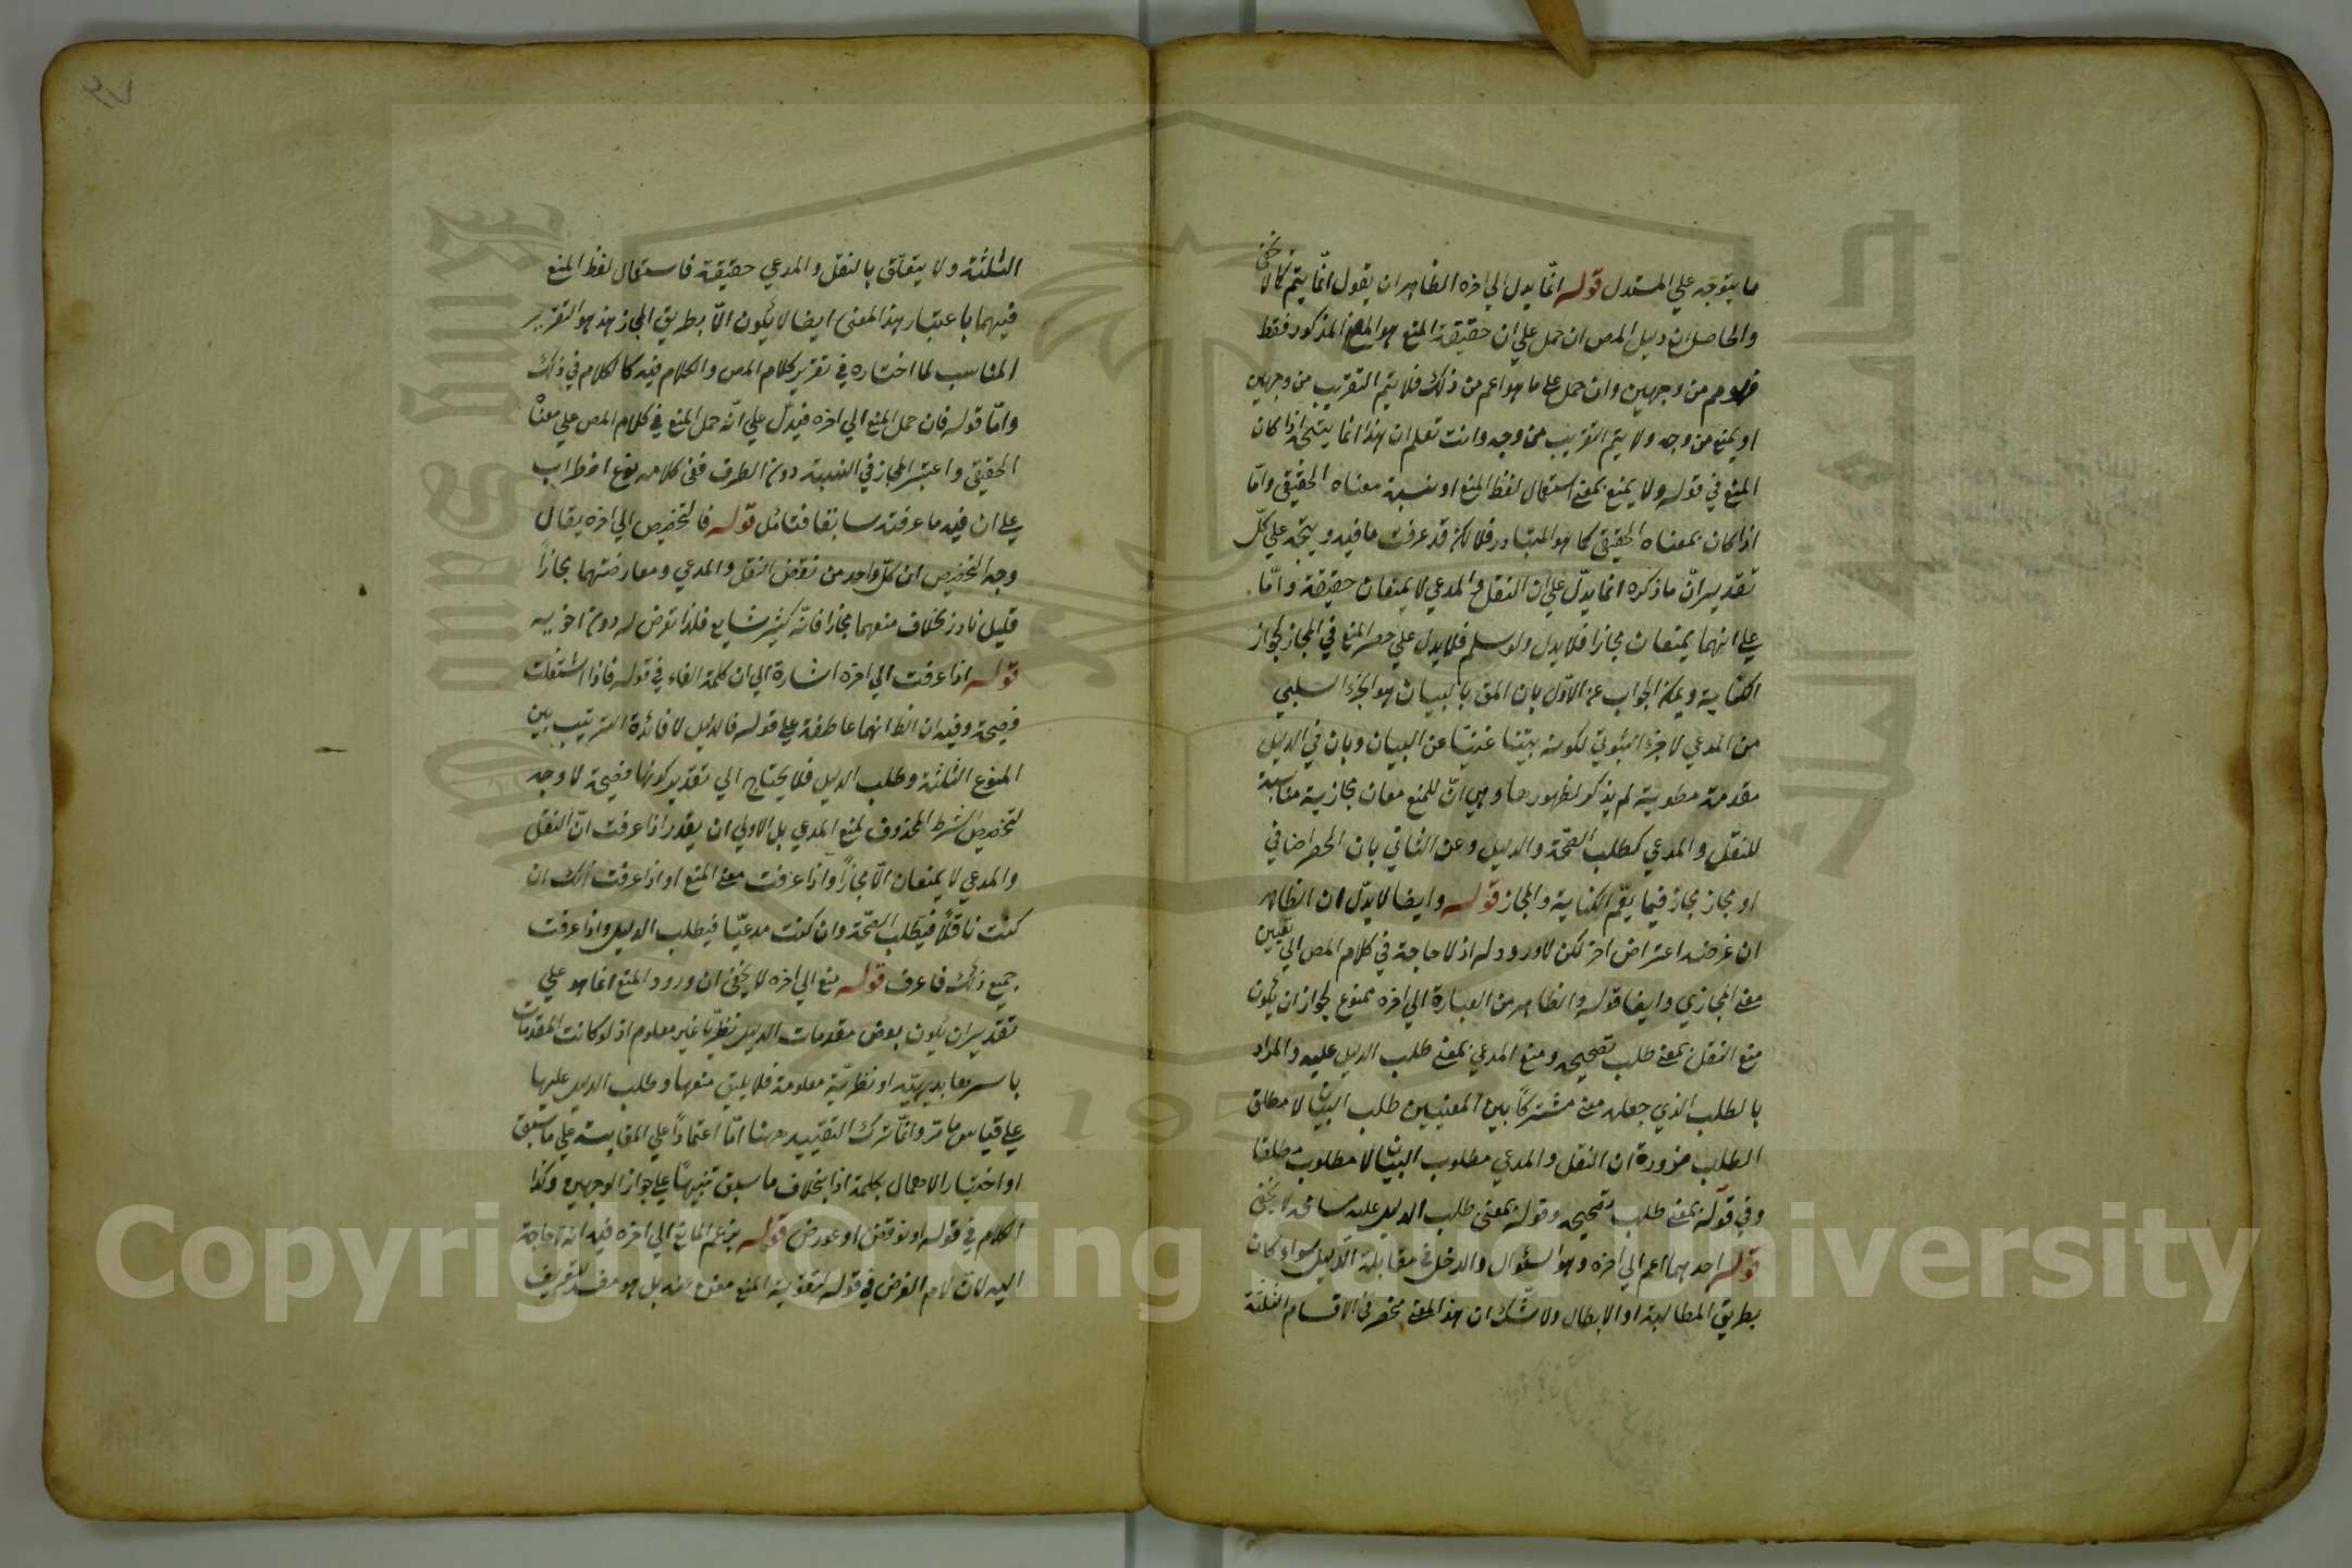 ما يتوجه علي المستدل قوله انّما يدل الي اخره الظاهر ان يقول انّما يتم كما لا يخفى
والحاصل ان دليل المص ان حمل علي ان حقيقة المنع هو المعنى المذكور فقط
فهو م من وجهين وان حمل على ما هو اعم من ذلك فلا يتم التقريب من وجهين
او يمنع من وجه ولا يتم التقريب من وجه وانت تعلم ان هذا انما يتجه اذا كان
المنع في قوله ولا يمنع بمعنى استعمال لفظ المنع او نسبة معناه الحقيقي وامّا
اذا كان بمعناه الحقيقي كما هو المتبادر فلا لكن قد عرفت ما فيه ويتجه علي كلّ
تقدير انّ ما ذكره انما يدلّ علي ان النقل والمدعي لا يمنعان حقيقة وامّا
علي انهما يمنعان مجازا فلا يدل ولو سلم فلا يدل علي حصر المنع في المجاز لجواز
الكناية ويمكن الجواب عن الاوّل بان المق بالبيان هو الجزء السلبي
من المدعي لا جزء الثبوتي لكونه بيّنا غنيّا عن البيان وبان في الدليل
مقدمة مطوية لم يذكر لظهورها وهي انّ للمنع معان مجازية مناسبة
للنقل والمدعي كطلب الصّحة والدليل وعن الثاني بان الحصر اضافي
او مجاز مجاز فيما يعّم الكناية والمجاز قوله وايضا لا يدّل ان الظاهر
ان غرضه اعتراض اخر لكن لا ورود له اذ لا حاجة في كلام المص الي تعيين
معنى المجازي وايضا قوله والظاهر من العبارة الي اخره ممنوع لجواز ان يكون
منع النقل بمعنى طلب تصحيحه ومنع المدعي بمعنى طلب الدليل عليه والمراد
بالطلب الذي جعله معنى مشتركاً بين المعنيين طلب البيان لا مطلق
الطلب ضرورة ان النقل والمدعي مطلوب البيان لا مطلوب مطلقا
وفي قوله بمعنى طلب تصحيحه وقوله بمعنى طلب الدليل عليه مسامحة لا يخفى
قوله احدهما اعم الي اخره وهو السئوال والدخل في مقابلة الدليل سواء كان
بطريق المطالبة او الابطال ولا شك ان هذا المعنى منحصر في الاقسام الثلثة
الثلثة ولا يتعلّق بالنقل والمدعي حقيقة فاستعمال لفظ المنع
فيهما باعتبار هذا المعنى ايضا لا يكون الّا بطريق المجاز هذا هو التقرير
المناسب لما اختاره في تقرير كلام المص والكلام فيه كالكلام في ذلك
وامّا قوله فان حمل المنع الي اخره فيدلّ علي انّه حمل المنع في كلام المص علي معناه
الحقيقي واعتبر المجاز في النسبة دون الطرف ففي كلامه نوع اضطراب
علي ان فيه ما عرفته سابقا فتأمل قوله فالتخصيص الي اخره يقال
وجه التخصيص ان كلّ واحد من نقض النقل والمدعي ومعارضتهما مجازاً
قليل نادر بخلاف منعهما مجازا فانّه كثير شايع فلذا تعرض له دون اخويه
قوله اذا عرفت الي اخره اشارة الي ان كلمة الفاء في قوله فاذا اشتغلت
فصيحة وفيه ان الظ انهما عاطفة علي قوله فالدليل لا فائدة الترتيب بين
المنوع الثلثة وطلب الدليل فلا يحتاج الي تقدير كونها فصيحة لا وجه
لتخصيص الشرط المحذوف لمنع المدعي بل الاولي ان يقدر اذا عرفت انّ النقل
والمدعي لا يمنعان الّا مجازاً واذا عرفت معنى المنع او اذا عرفت انك ان
كنت ناقلاً فيطلب الصحّة وان كنت مدعيّا فيطلب الدليل واذا عرفت
جميع ذلك فاعرف قوله منع الي اخره لا يخفى ان ورود المنع انما هو علي
تقدير ان يكون بعض مقدمات الدليل نظريّا غير معلوم اذ لو كانت المقدمات
باسرها بديهيّة او نظريّة معلومة فلا يليق منعها وطلب الدليل عليها
علي قياس ما مرّ وانّما ترك التقييد ههنا امّا اعتماداً علي المقايسة علي ما سبق
او اختيار الاهمال بكلمة اذا بخلاف ما سبق تنبيهاً علي جواز الوجهين وكذا
الكلام في قوله او نوقض او عورض قوله بزعم المانع الي اخره فيه انه لا حاجة
اليه لانّ لام الغرض في قوله لتقوية المنع مغن عنه بل هو مفسد لتعريف
Copyright © King Saud University
1957